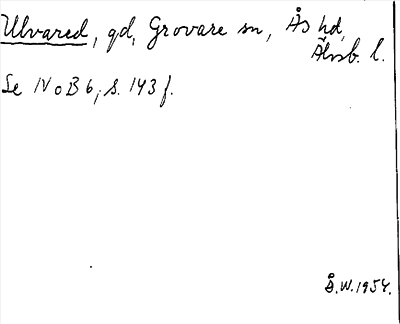 Ulvared, gd, Grovare sn, Ås hd,
Älvsb. l.
Se NoB 6, s. 143 f.
Å.W. 1954.